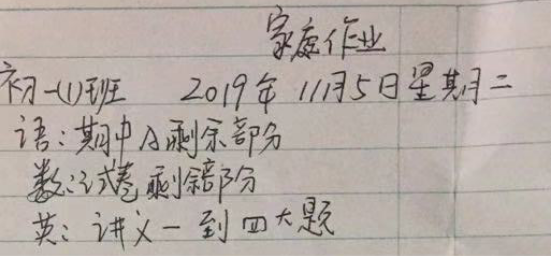 家庭作业
初一(1)班 2019年11月5日星期二
语：期中A剩余部分
数：试卷剩余部分
英：讲义一到四大题